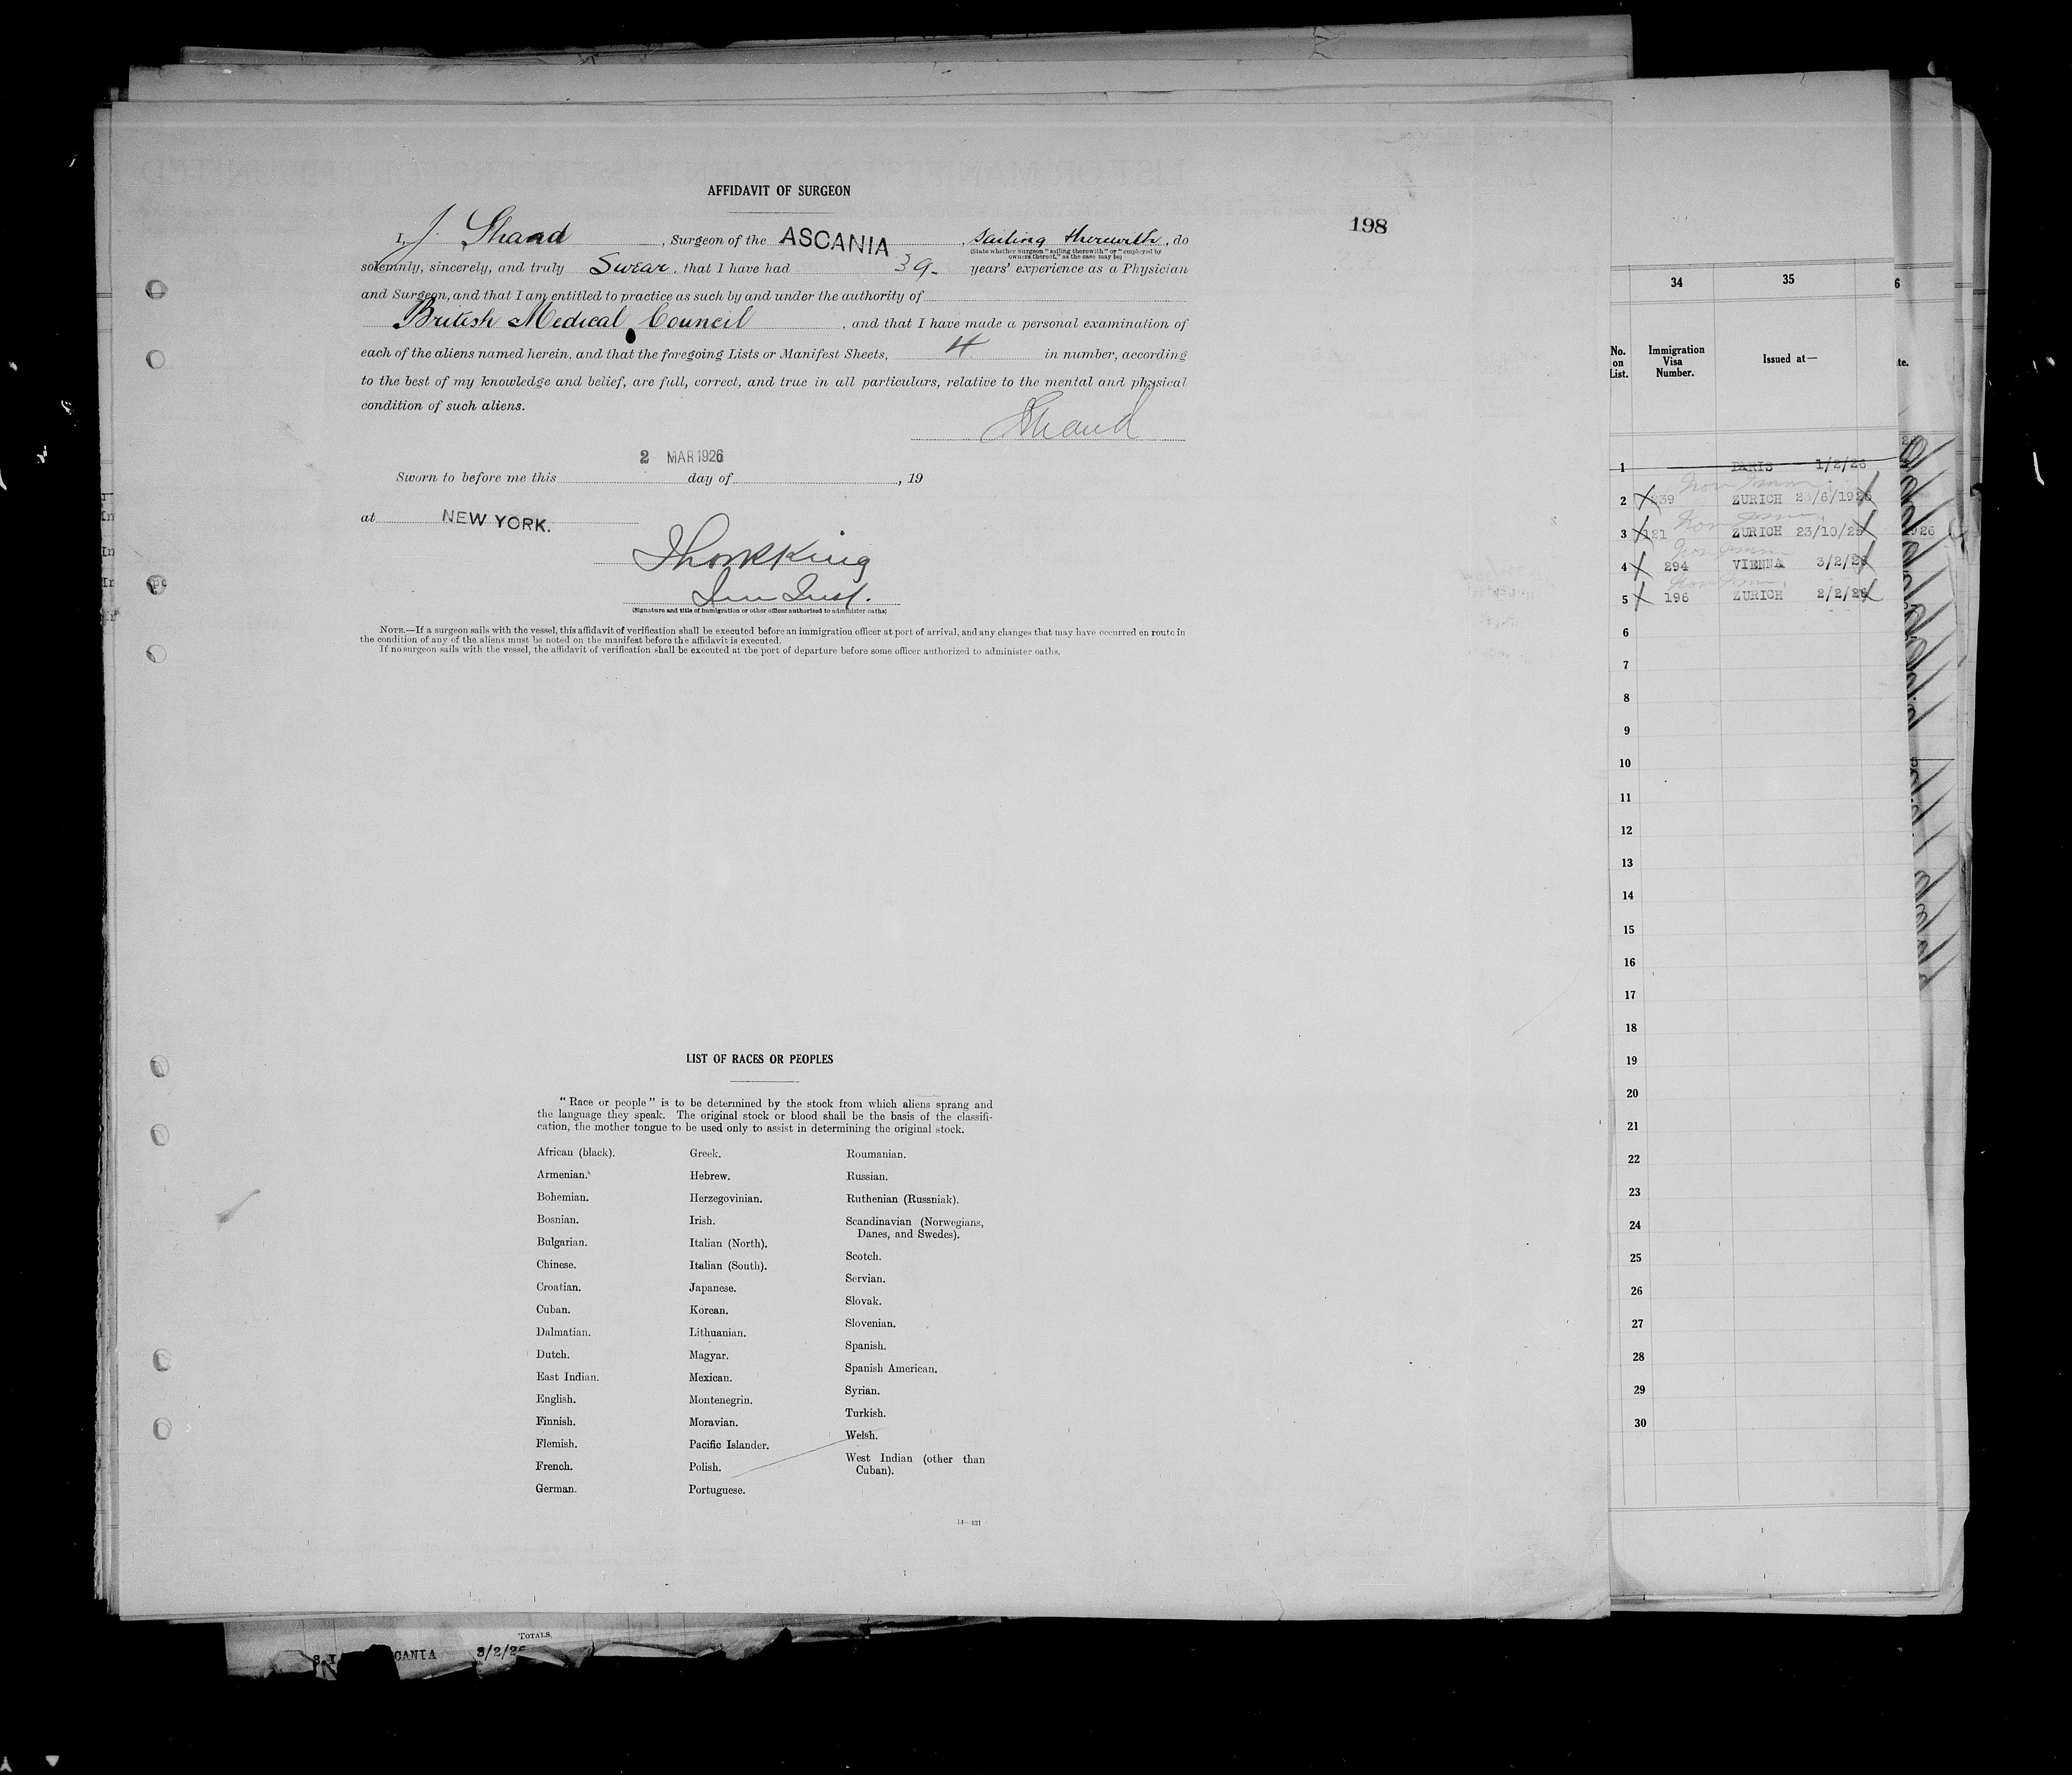 AFFIDAVIT OF SURGEON
198
I, J. Shand, Surgeon of the ASCANIA, sailing therewith, do
(State whether Surgeon "sailing therewith" or "employed by
owners thereof," as the case may be)
solemnly, sincerely, and truly Swear, that I have had 39- years' experience as a Physician
and Surgeon, and that I am entitled to practice as such by and under the authority of
British Medical Council, and that I have made a personal examination of
each of the aliens named herein, and that the foregoing Lists or Manifest Sheets, 4 in number, according
to the best of my knowledge and belief, are full, correct, and true in all particulars, relative to the mental and physical
condition of such aliens.
J Shand
2 MAR 1926
Sworn to before me this day of , 19
at NEW YORK.
King
Imm Insp.
(Signature and title of immigration or other officer authorized to administer oaths)
NOTE.—If a surgeon sails with the vessel, this affidavit of verification shall be executed before an immigration officer at port of arrival, and any changes that may have occurred en route in
the condition of any of the aliens must be noted on the manifest before the affidavit is executed.
If no surgeon sails with the vessel, the affidavit of verification shall be executed at the port of departure before some officer authorized to administer oaths.
LIST OF RACES OR PEOPLES
"Race or people" is to be determined by the stock from which aliens sprang and
the language they speak. The original stock or blood shall be the basis of the classifi-
cation, the mother tongue to be used only to assist in determining the original stock.
African (black).
Armenian.
Bohemian.
Bosnian.
Bulgarian.
Chinese.
Croatian.
Cuban.
Dalmatian.
Dutch.
East Indian.
English.
Finnish.
Flemish.
French.
German.
Greek.
Hebrew.
Herzegovinian.
Irish.
Italian (North).
Italian (South).
Japanese.
Korean.
Lithuanian.
Magyar.
Mexican.
Montenegrin.
Moravian.
Pacific Islander.
Polish.
Portuguese.
Roumanian.
Russian.
Ruthenian (Russniak).
Scandinavian (Norwegians,
Danes, and Swedes).
Scotch.
Servian.
Slovak.
Slovenian.
Spanish.
Spanish American.
Syrian.
Turkish.
Welsh.
West Indian (other than
Cuban).
34 35 6
No.
on
List.
Immigration
Visa
Number.
Issued at—
te.
1 PARIS 1/2/26
2 239 ZURICH 23/6/192
3 121 ZURICH 23/10/25 26
4 294 VIENNA 3/2/26
5 196 ZURICH 2/2/26
6
7
8
9
10
11
12
13
14
15
16
17
18
19
20
21
22
23
24
25
26
27
28
29
30
TOTALS
CANIA 3/2/26